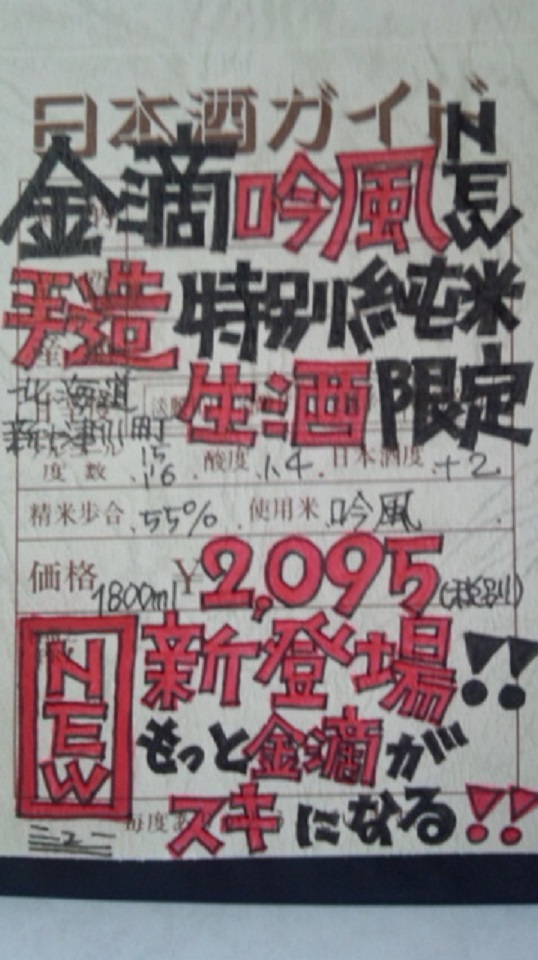 日本酒ガイド
金滴吟風 NEW
手造 特別純米
北海道
新十津川町
生酒 限定
度数 15 16 酸度 1.4 日本酒度 +2
精米歩合 55% 使用米 吟風
価格 1800ml ¥2,095(税別)
NEW
新登場!!
もっと金滴が
スキになる!!
毎度あ